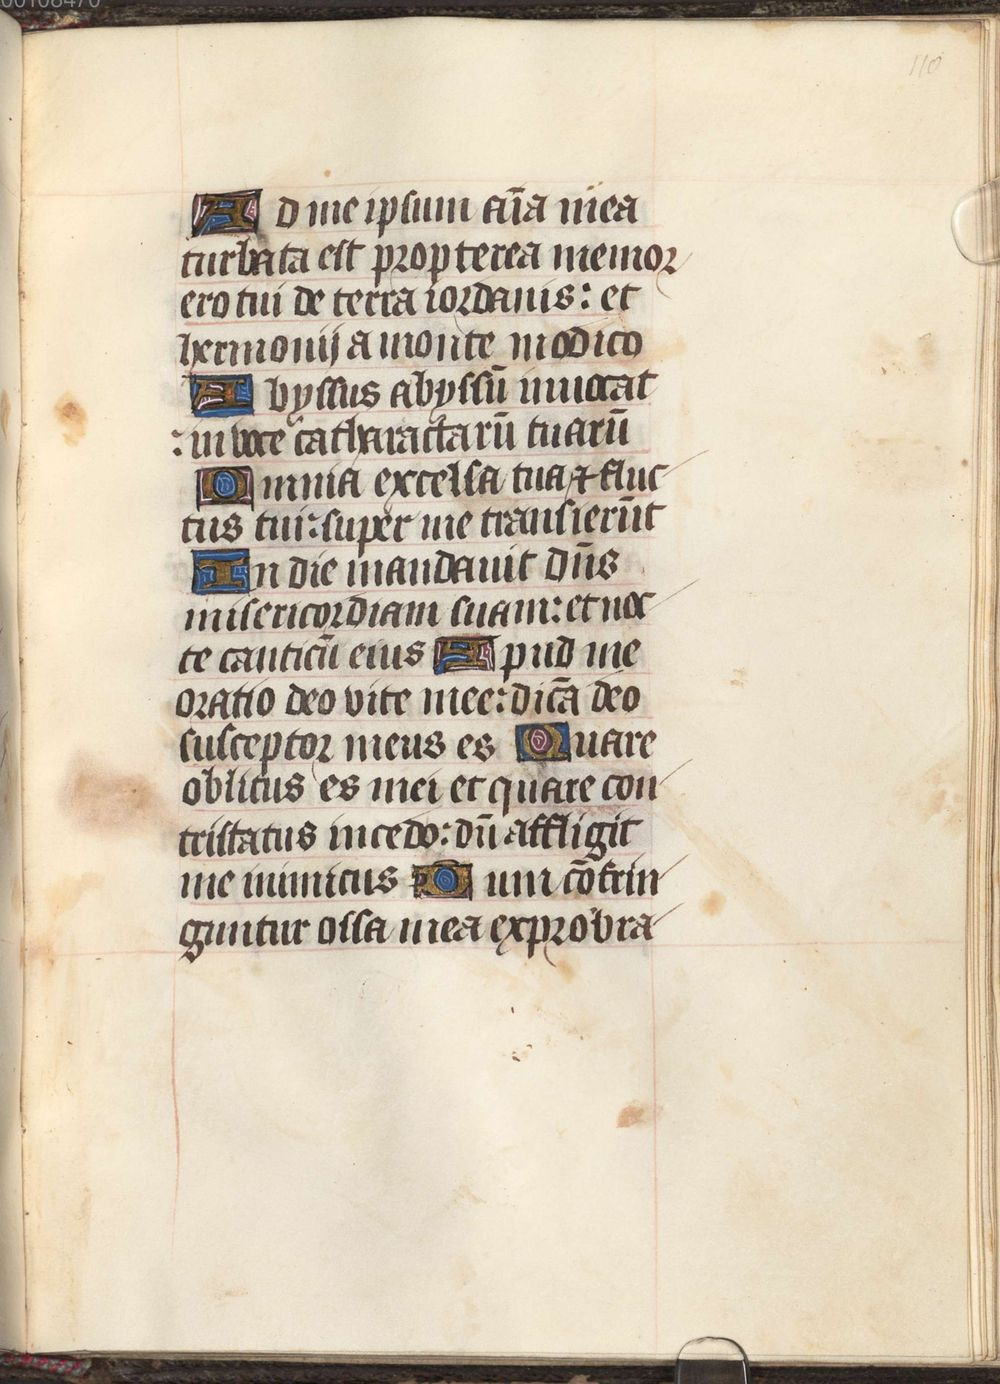 00108470
110
Ad me ipsum aīa mea
turbata est propterea memor
ero tui de terra iordanis: et
hermonij a monte modico
Abyssus abyssū inuocat
: in voce catharactarū tuarū
Omnia excelsa tua & fluc
tus tui: super me transierūt
In die mandauit dn̄s
misericordiam suam: et noc
te canticū eius Apud me
oratio deo vite mee: dicā deo
susceptor meus es Quare
oblitus es mei et quare con
tristatus incedo: dū affligit
me inimicus Dum cōfrin
guntur ossa mea exprobra